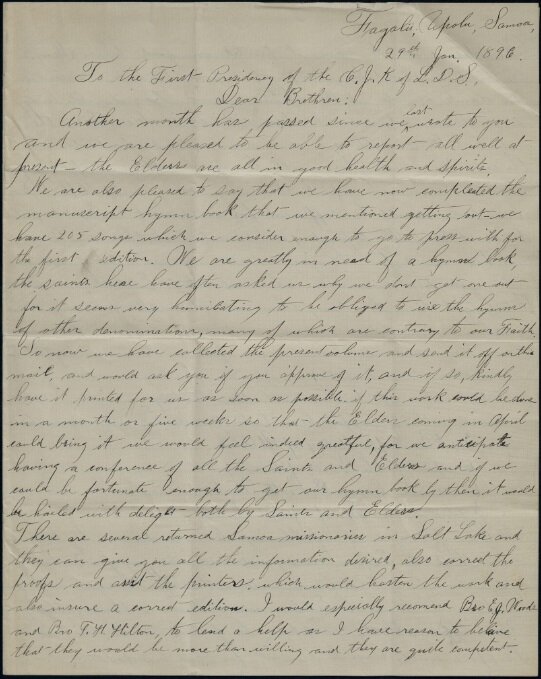 Fagalii, Upolu, Samoa,
29th Jan. 1896.
To the First Presidency of the C. J. K of L. D. S.
Dear Brethren:
Another month has passed since we last wrote to you
and we are pleased to be able to report all well at
present – the Elders are all in good health and spirits.
We are also pleased to say that we have now completed the
manuscript hymn book that we mentioned getting out – we
have 205 songs which we consider enough to go to press with for
the first edition. We are greatly in need of a hymn book
the saints here have often asked us why we don't get one out
for it seems very humiliating to be obliged to use the hymns
of other denominations, many of which are contrary to our Faith.
So now we have collected the present volume and send it off on this
mail, and would ask you if you approve of it, and if so, kindly
have it printed for us as soon as possible. if this work could be done
in a month or five weeks so that the Elders coming in April
could bring it we would feel indeed greatful, for we anticipate
having a conference of all the Saints and Elders and if we
could be fortunate enough to get our hymn book by then it would
be hailed with delight both by Saints and Elders.
There are several returned Samoa missionaries in Salt Lake and
they can give you all the information desired, also correct the
proofs and assist the printers, which would hasten the work and
also insure a correct edition. I would especially recomend Bro E. J. Wood
and Bro T. H. Hilton, to lend a help as I have reason to believe
that they would be more than willing and they are quite competent.